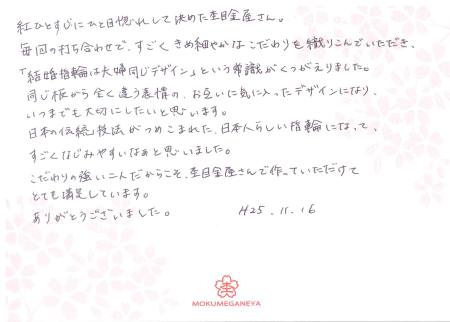 紅ひとすじにひと目惚れして決めた杢目金屋さん。
毎回の打ち合わせで、すごくきめ細やかなこだわりを織りこんでいただき、
「結婚指輪は夫婦同じデザイン」という常識がくつがえりました。
同じ板から全く違う表情の、お互いに気に入ったデザインになり、
いつまでも大切にしたいと思います。
日本の伝統技法がつめこまれた、日本人らしい指輪になって、
すごくなじみやすいなぁと思いました。
こだわりの強い二人だからこそ、杢目金屋さんで作っていただけて
とても満足しています。
ありがとうございました。 H25.11.16
MOKUMEGANEYA